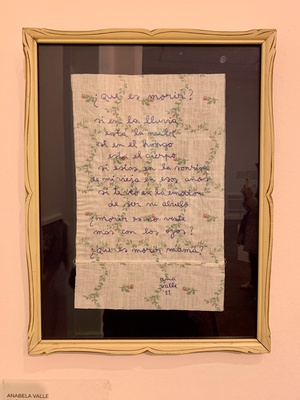 ¿que es morir?
si en la lluvia
esta la nube
si en el hongo
esta el cuerpo
si estas en la sonrisa
de mi vieja en esos años
si te veo en la emoción
de ser mi abuelo
¿morir es no verte
mas con los ojos?
¿que es morir mamá?
ana
valle
ANABELA VALLE